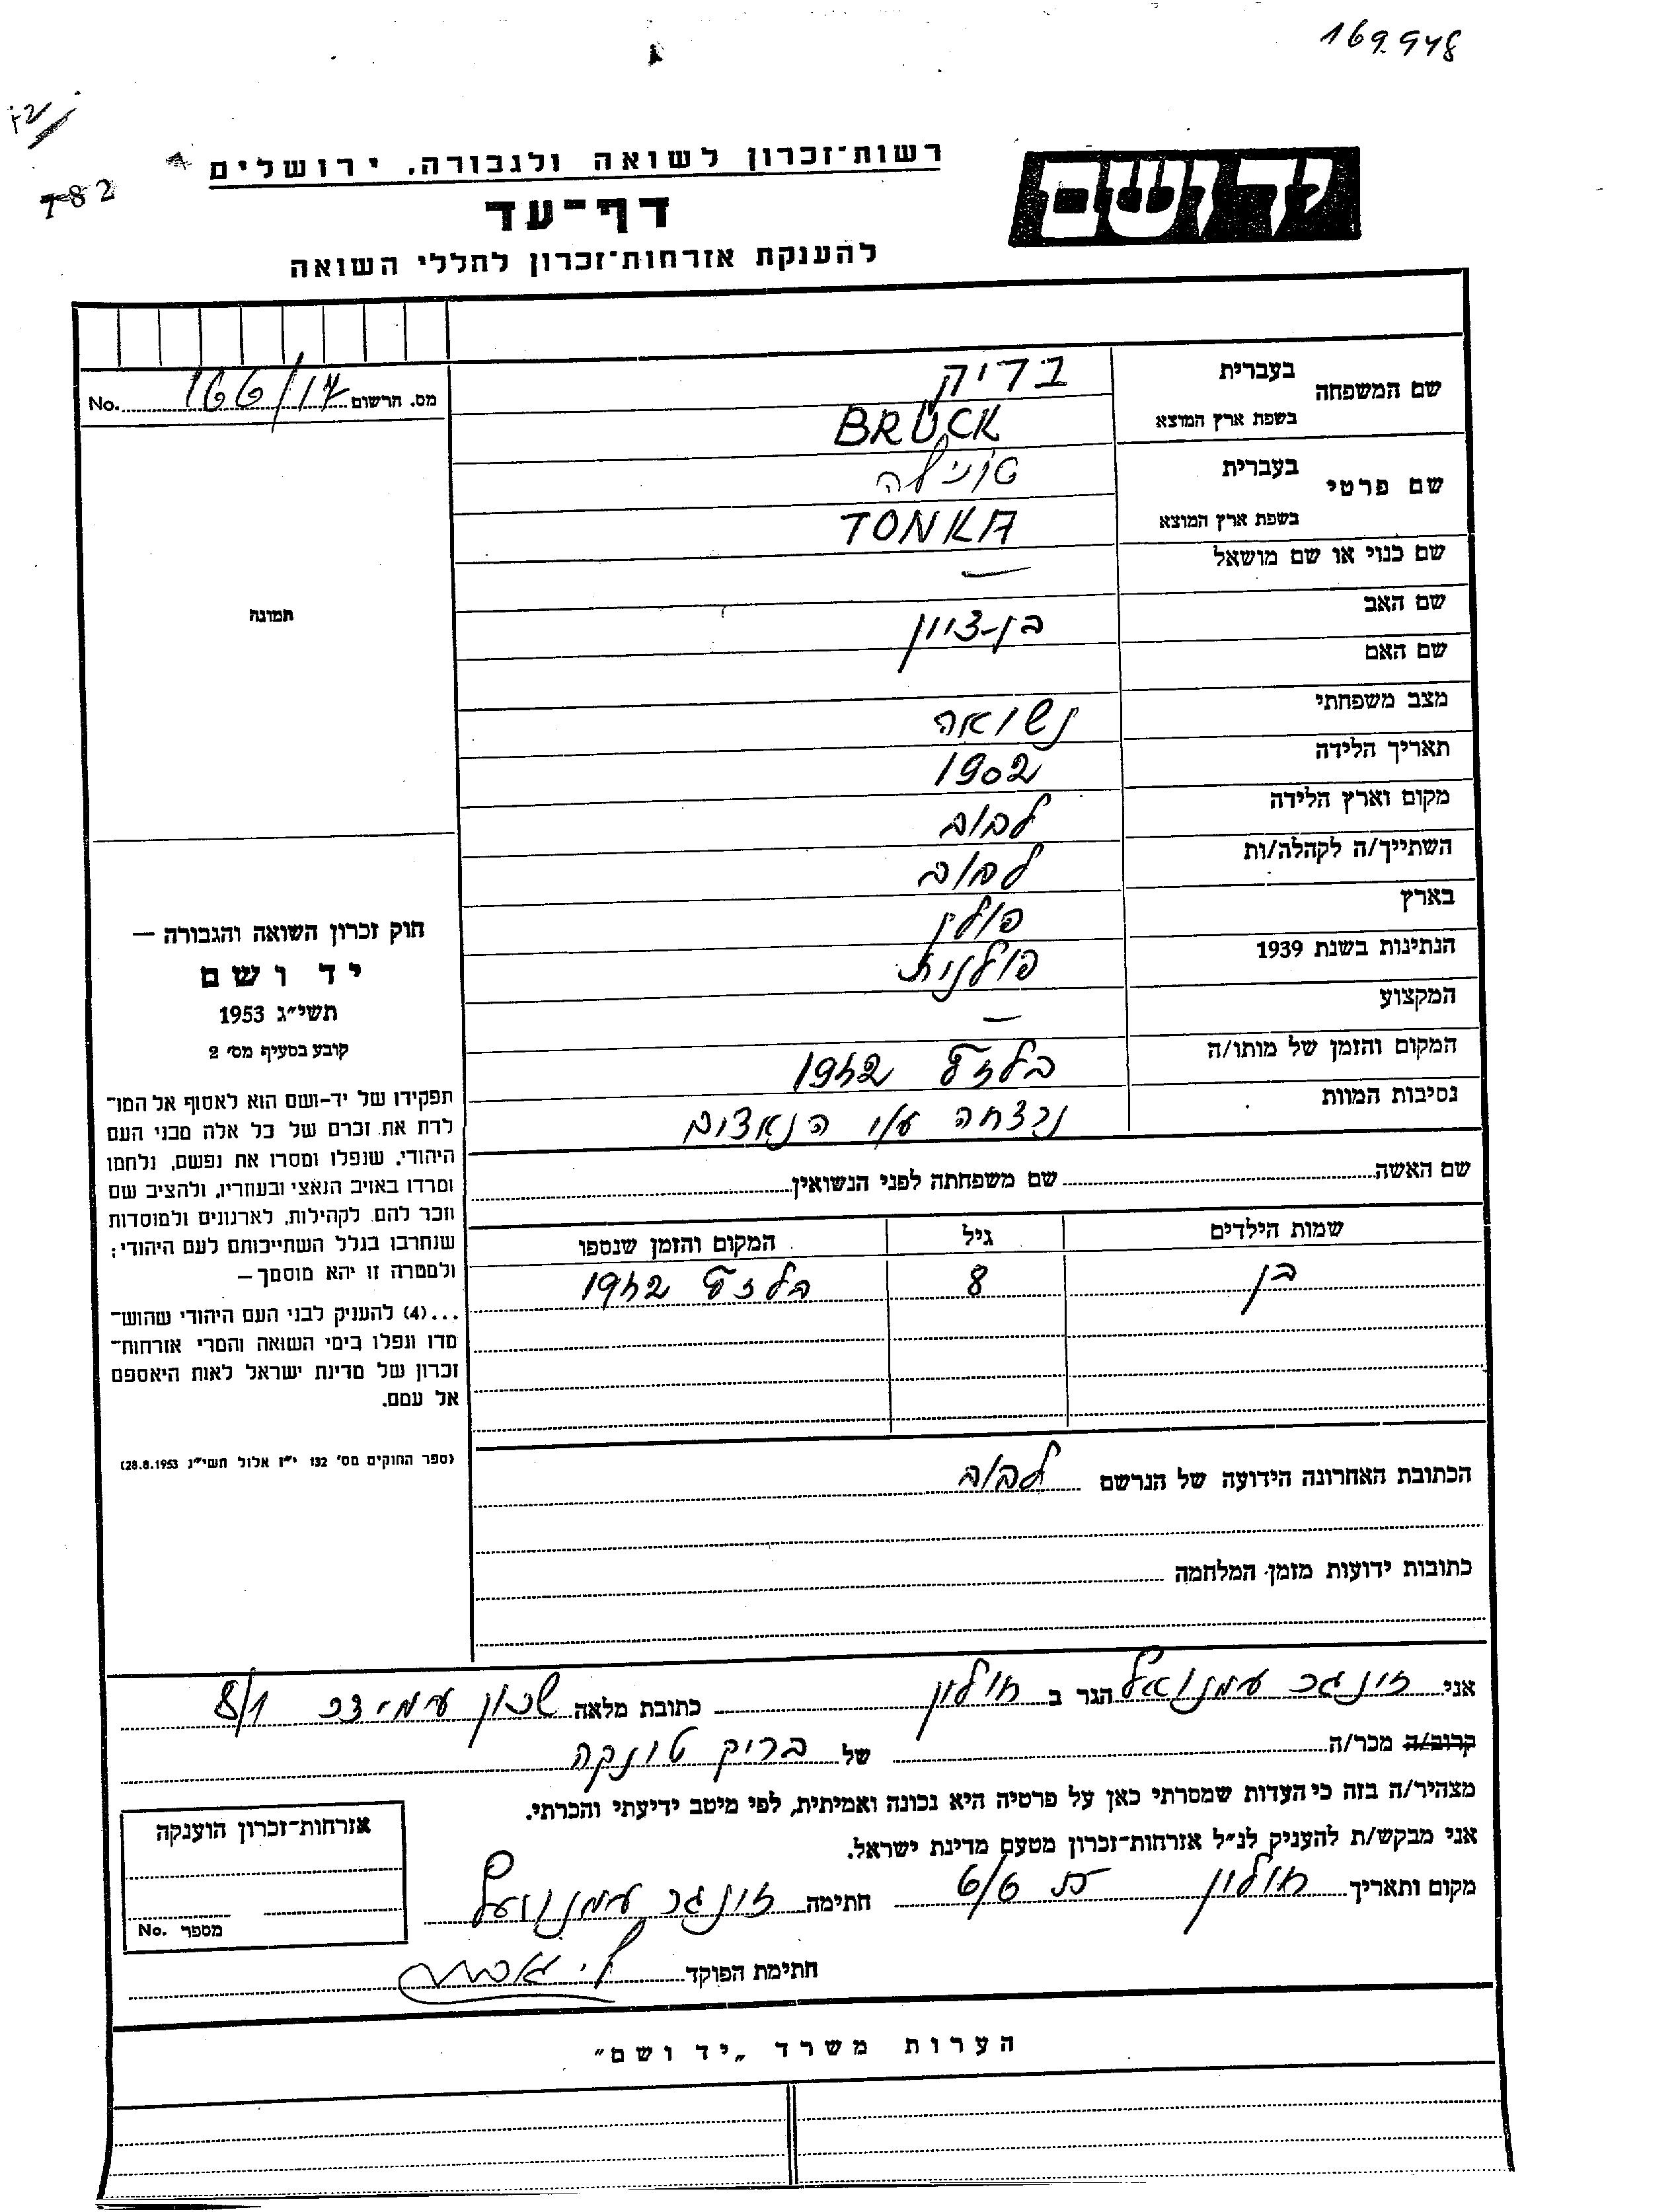 169.948
782
יד ושם
רשות־זכרון לשואה ולגבורה, ירושלים
דף־עד
להענקת אזרחות־זכרון לחללי השואה
מס. הרשום 166/17 No.
שם המשפחה
בעברית בריק
בשפת ארץ המוצא BRÜCK
שם פרטי
בעברית
בשפת ארץ המוצא TONKA
שם כנוי או שם מושאל —
שם האב בן-ציון
שם האם
מצב משפחתי נשואה
תאריך הלידה 1902
מקום וארץ הלידה לבוב
השתייך/ה לקהלה/ות לבוב
בארץ פולין
הנתינות בשנת 1939 פולנית
המקצוע —
המקום והזמן של מותו/ה בלזץ 1942
נסיבות המוות נרצחה ע"י הנאצים
תמונה
חוק זכרון השואה והגבורה —
יד ושם
תשי״ג 1953
קובע בסעיף מס׳ 2
תפקידו של יד-ושם הוא לאסוף אל המו־
לדת את זכרם של כל אלה מבני העם
היהודי, שנפלו ומסרו את נפשם, נלחמו
ומרדו באויב הנאצי ובעוזריו, ולהציב שם
וזכר להם, לקהילות, לארגונים ולמוסדות
שנחרבו בגלל השתייכותם לעם היהודי;
ולמטרה זו יהא מוסמך —
...(4) להעניק לבני העם היהודי שהוש־
מדו ונפלו בימי השואה והמרי אזרחות־
זכרון של מדינת ישראל לאות היאספם
אל עמם.
(ספר החוקים מס׳ 132 י״ז אלול תשי״ג 28.8.1953)
שם האשה שם משפחתה לפני הנשואין
שמות הילדים גיל המקום והזמן שנספו
בן 8 בלזץ 1942
הכתובת האחרונה הידועה של הנרשם לבוב
כתובות ידועות מזמן המלחמה
אני זונגר עמנואל הגר ב חולון כתובת מלאה שכון עמידר 8/1
קרוב/ה מכר/ה של בריק טונקה
מצהיר/ה בזה כי העדות שמסרתי כאן על פרטיה היא נכונה ואמיתית, לפי מיטב ידיעתי והכרתי.
אני מבקש/ת להעניק לנ״ל אזרחות־זכרון מטעם מדינת ישראל.
מקום ותאריך חולון חתימה זונגר עמנואל
חתימת הפוקד
אזרחות־זכרון הוענקה
מספר No.
הערות משרד „יד ושם״